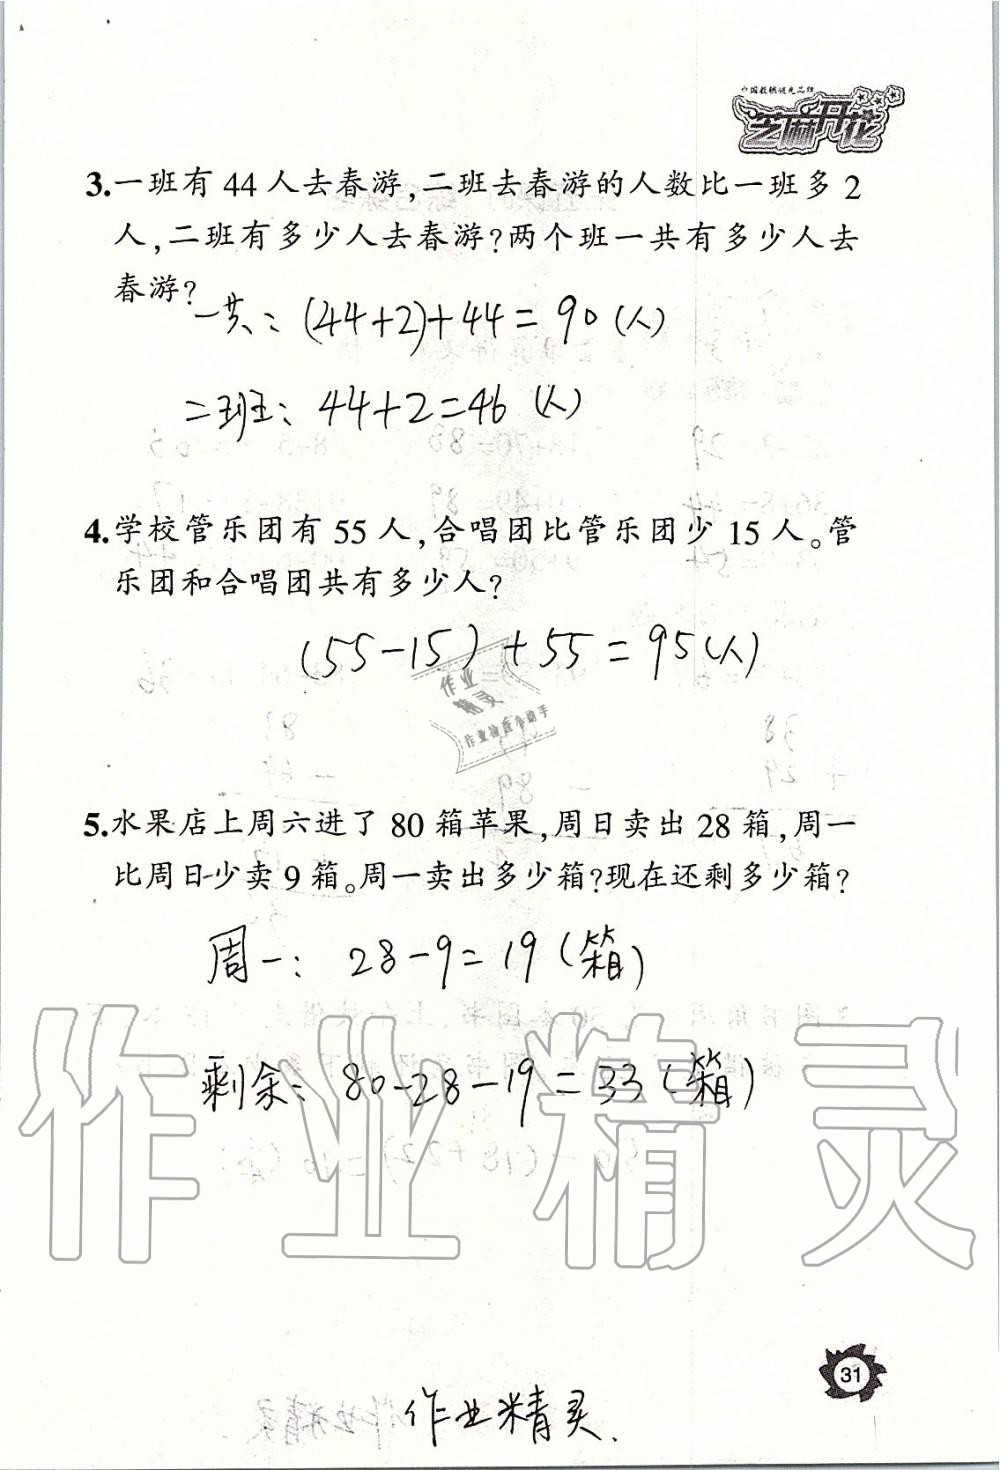 中国教辅领先品牌
芝麻开花
3.一班有44人去春游,二班去春游的人数比一班多2
人,二班有多少人去春游?两个班一共有多少人去
春游?
一共:(44+2)+44=90(人)
二班:44+2=46(人)
4.学校管乐团有55人,合唱团比管乐团少15人。管
乐团和合唱团共有多少人?
(55-15)+55=95(人)
作业
精灵
作业检查小助手
5.水果店上周六进了80箱苹果,周日卖出28箱,周一
比周日少卖9箱。周一卖出多少箱?现在还剩多少箱?
周一:28-9=19(箱)
剩余:80-28-19=33(箱)
作业精灵
31
作业精灵.